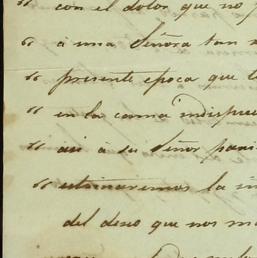 " con el dolor que no p
" á una Señora tan
" presente epoca que l
" en la cama indispue
" asi á su Señor
" estimaremos la in
del deseo que nos m